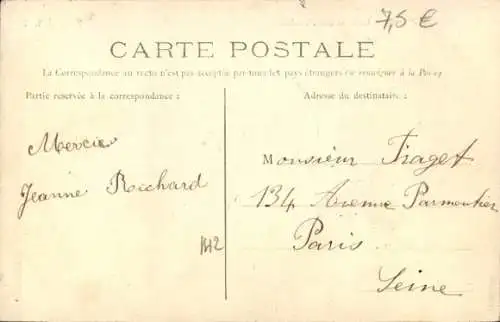 7,5 €
CARTE POSTALE
La Correspondance au recto n'est pas acceptée par tous les pays étrangers (se renseigner à la Poste)
Partie reservée à la correspondance :
Adresse du destinataire :
Mercie
Jeanne Richard
1112
Monsieur Fraget
134 Avenue Parmentier
Paris
Seine